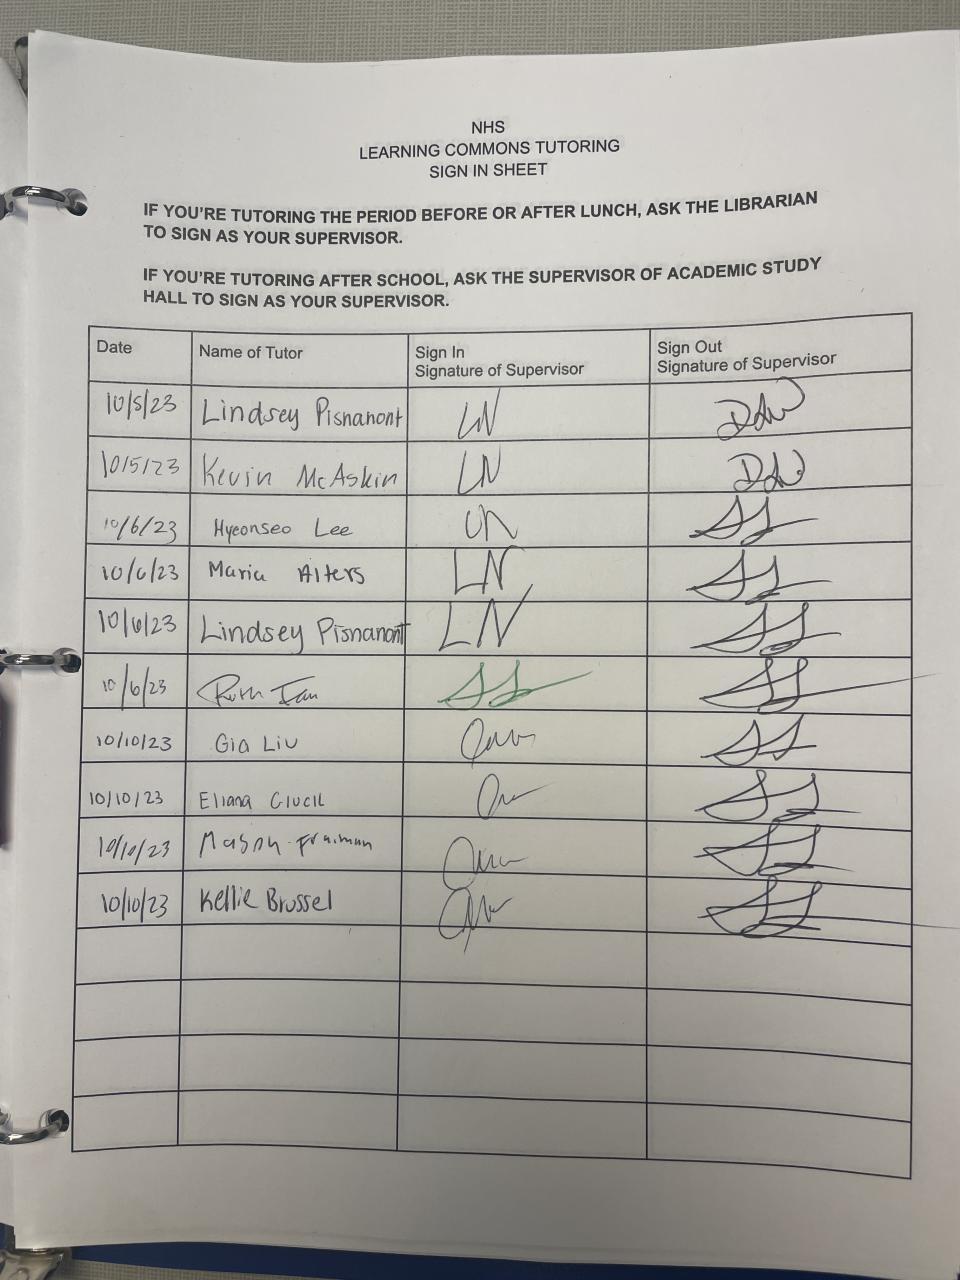 NHS
LEARNING COMMONS TUTORING
SIGN IN SHEET
IF YOU'RE TUTORING THE PERIOD BEFORE OR AFTER LUNCH, ASK THE LIBRARIAN
TO SIGN AS YOUR SUPERVISOR.
IF YOU'RE TUTORING AFTER SCHOOL, ASK THE SUPERVISOR OF ACADEMIC STUDY
HALL TO SIGN AS YOUR SUPERVISOR.
Date Name of Tutor Sign In Signature of Supervisor Sign Out Signature of Supervisor
10/5/23 Lindsey Pisnanont LN
10/5/23 Kevin McAskin LN
10/6/23 Hyeonseo Lee
10/6/23 Maria Alters LN
10/6/23 Lindsey Pisnanont LN
10/6/23 Ruth
10/10/23 Gia Liu
10/10/23 Eliana
10/10/23 Mason Fraiman
10/10/23 Kellie Brussel